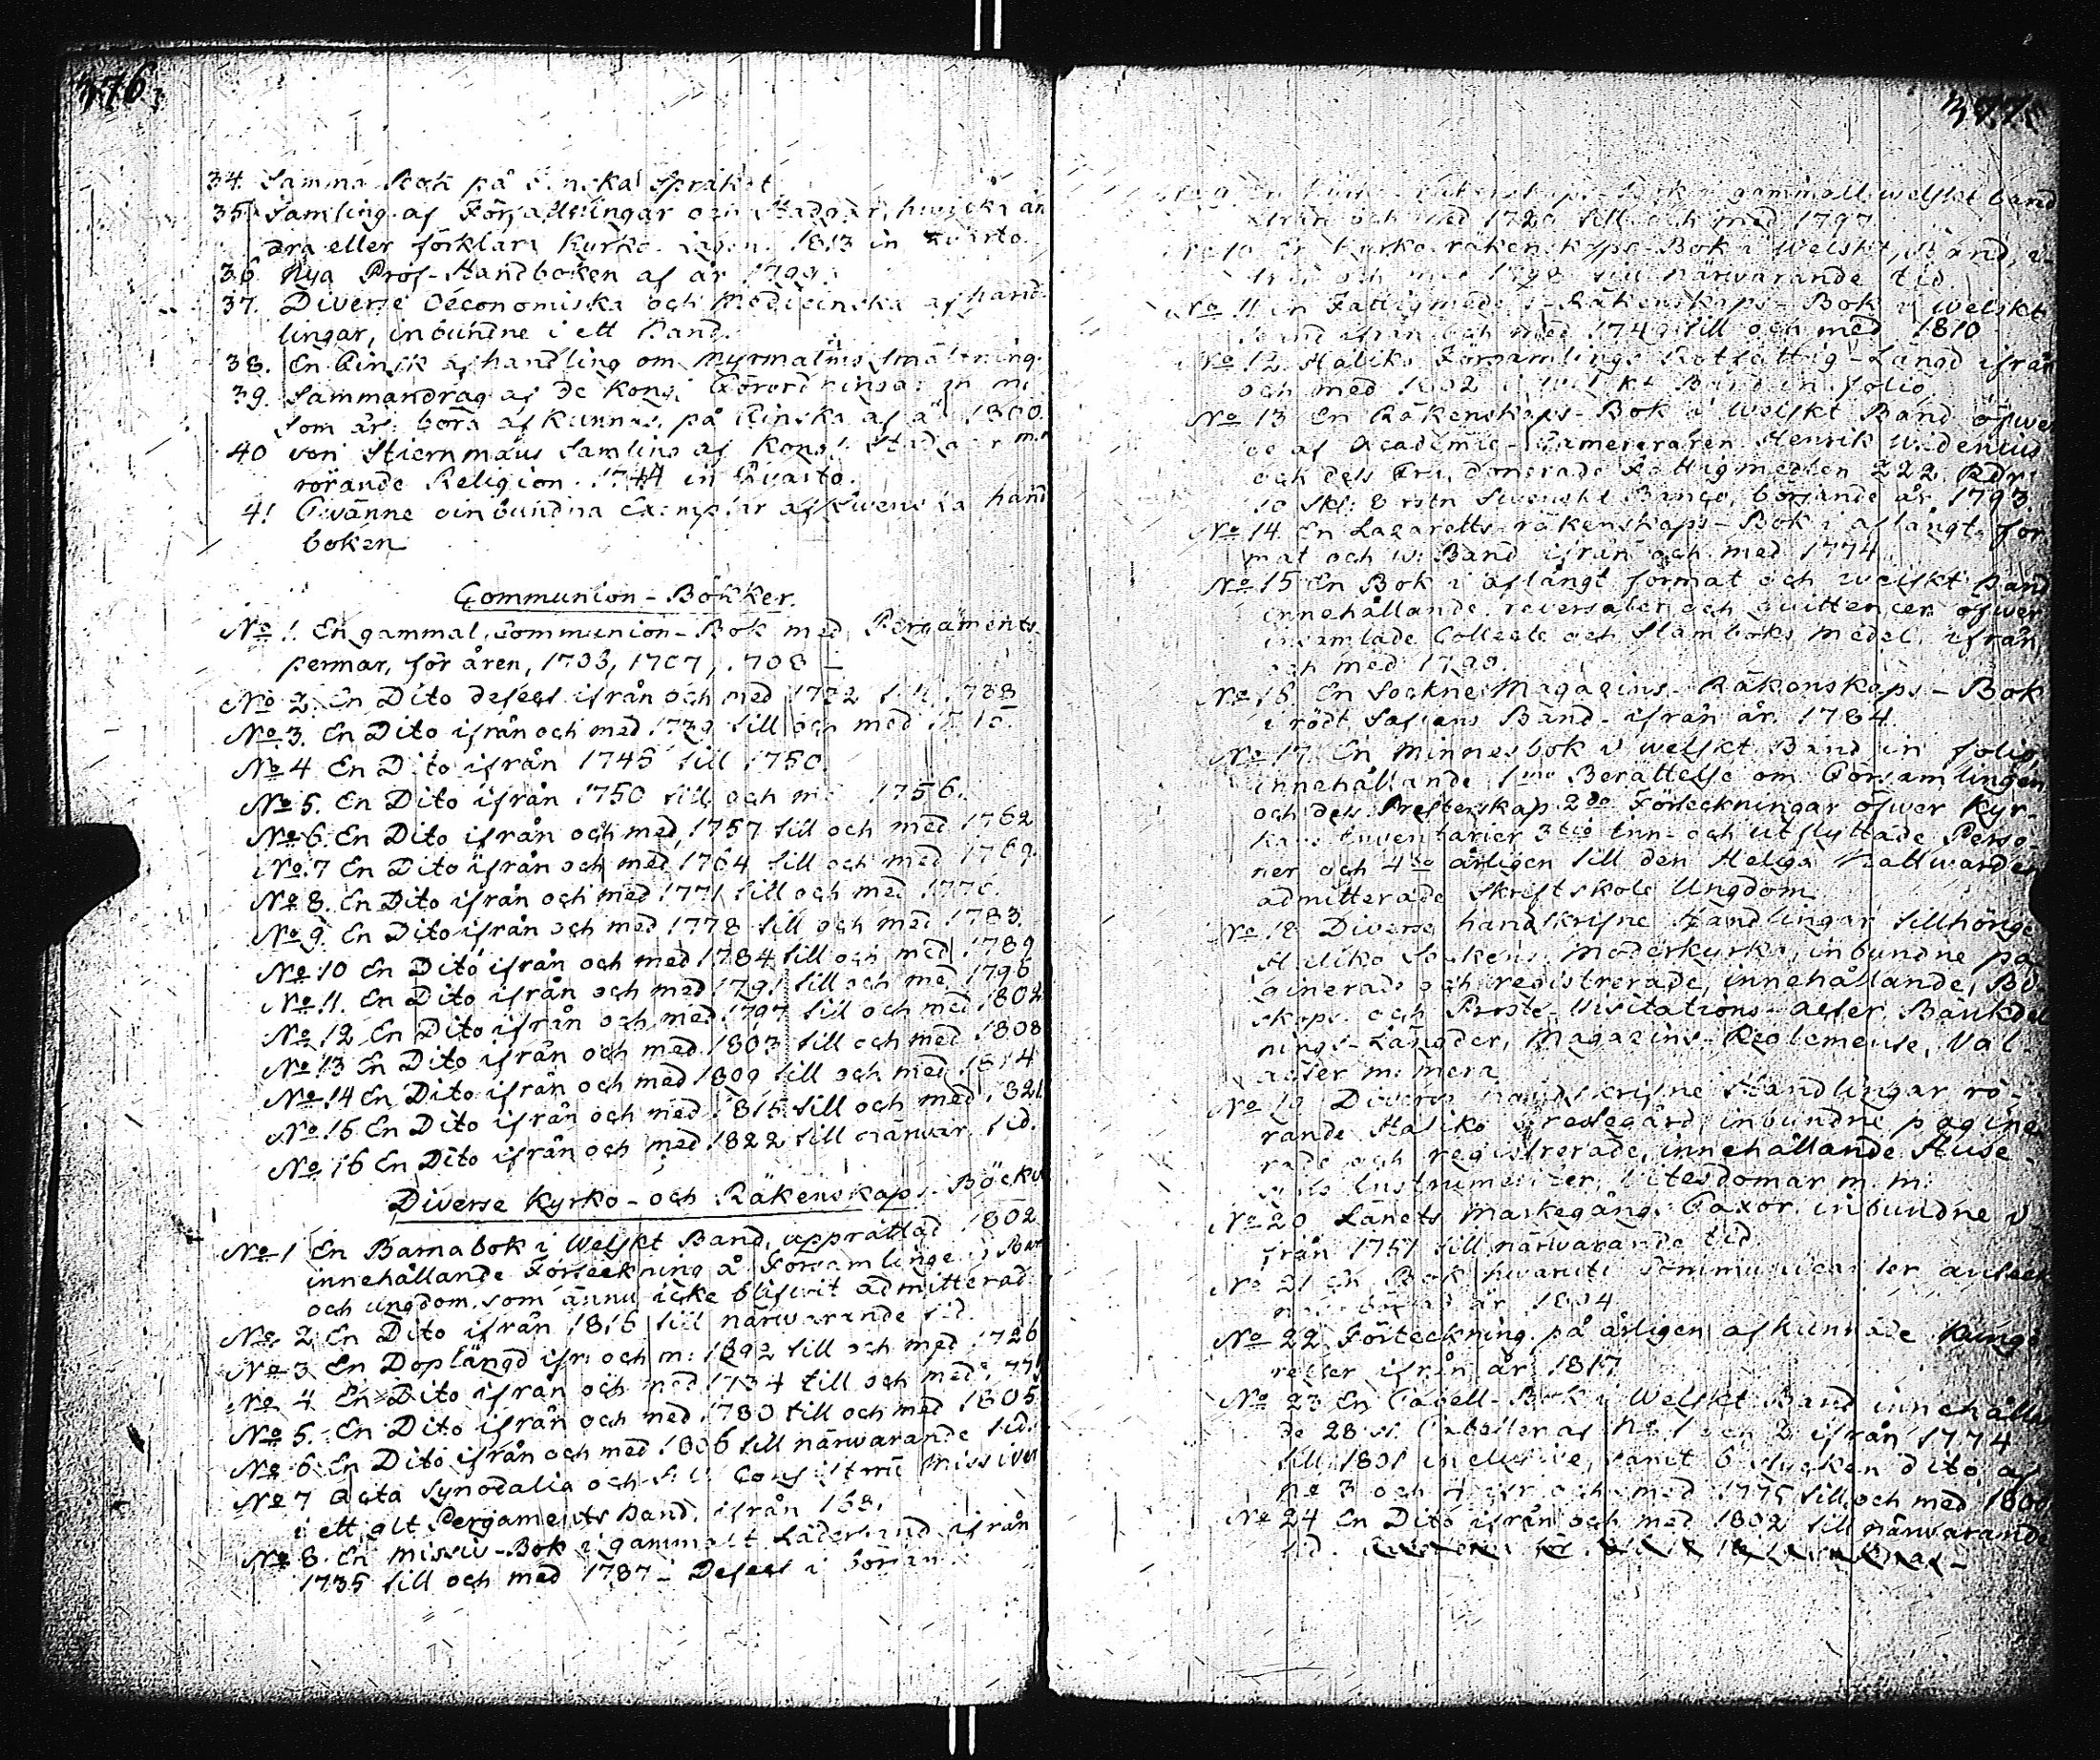 376.
34. Samma Bok på Finska Språket
35. Samling af Författningar och Stadgar, hwilka än
dra eller förklara Kyrko Lagen. 1813 in Kvarto.
36. Nya Prof-Handboken af år 1799.
37. Diverse Oeconomiska och Medicinska afhand-
lingar, inbundne i ett Band.
38. En Finsk afhandling om Myrmalms smältning.
39. Sammandrag af de Kongl Förordningar
som årl: böra afkunnas på Finska af år 1800.
40 von Stiernmans Samling af Kongl. Stadgar m.m
rörande Religion. 1744 in Qvarto.
41 Twänne oinbundna Exemplar af Swenska hand
boken
Communion-Böcker.
No 1. En gammal Communion-Bok med Pergaments-
permar, för åren, 1703, 1707, 1708 –
No 2. En Dito defect ifrån och med 1732 till 1738
No 3. En Dito ifrån och med 1739 till och med
No 4 En Dito ifrån 1745 till 1750.
No 5. En Dito ifrån 1750 till och med 1756.
No 6. En Dito ifrån och med 1757 till och med 1762
No 7 En Dito ifrån och med 1764 till och med 1769.
No 8. En Dito ifrån och med 1771 till och med 1776.
No 9. En Dito ifrån och med 1778 till och med 1783.
No 10 En Dito ifrån och med 1784 till och med 1789
No 11. En Dito ifrån och med 1791 till och med 1796
No 12 En Dito ifrån och med 1797 till och med 1802
No 13 En Dito ifrån och med 1803 till och med 1808
No 14 En Dito ifrån och med 1809 till och med 1814
No 15 En Dito ifrån och med 1815 till och med 1821
No 16 En Dito ifrån och med 1822 till närwar. tid.
Diverse Kyrko- och Räkenskaps-Böcker
No 1 En Barnabok i Welskt Band, upprättad 1802
innehållande Förteckning å Församlingens Barn
och ungdom, som ännu icke blifwit admitterad
No 2 En Dito ifrån 1816 till närwarande tid.
No 3 En Doplängd ifr: och m: 1692 till och med 1726
No 4 En Dito ifrån och med 1734 till och med 1779
No 5. En Dito ifrån och med 1780 till och med 1805
No 6 En Dito ifrån och med 1806 till närwarande tid.
No 7 Acta Synodalia och Consistorii Missiver
i ett alt Pergaments band, ifrån 168
No 8. En Missiv-Bok i gammalt Läderband ifrån
1735 till och med 1787 – Defect i början
377.
No 9 En Kyrko Räkenskaps-Bok i gammalt welskt band
ifrån och med 1720 till och med 1797
No 10 En Kyrko räkenskaps-Bok i Welskt Band, i-
från och med 1798 till närwarande tid.
No 11 En Fattigmedels-Räkenskaps-Bok i welskt
Band ifrån och med 1749 till och med 1810
No 12 Haliko Församlings Rotfattig-Längd ifrån
och med 1802 i welskt Band in folio
No 13 En Räkenskaps-Bok i Welskt Band öfwer
de af Academie-Camereraren Henrik Widenius
och dess Fru donerade Fattigmedlen 222 Rdr:
10 Skl: 8 rstn Swenskt Banco, börjande år 1793.
No 14 En Lazaretts-räkenskaps-Bok i aflångt for
mat och w: Band ifrån och med 1774.
No 15 En Bok i aflångt format och welskt Band
innehållande reversaler och quittencer öfwer
insamlade Collecte och Stamboks medel ifrån
och med 1798.
No 16 En Sockne Magazins-Räkenskaps-Bok
i rödt Saffians Band ifrån år 1784.
No 17 En Minnesbok i welskt Band in folio,
innehållande 1mo Berättelse om Församlingen
och dess Presterskap 2do Förteckningar öfwer Kyr-
kans Inventarier 3tio Inn- och utflyttade Perso-
ner och 4to årligen till den Heliga Nattwarden
admitterade Skriftskole Ungdom
No 18 Diverse handskrifne Handlingar tillhörige
Haliko Sockens Moderkyrka, inbundne pa
ginerade och registrerade, innehållande, Bi-
skops- och Prosts-Visitations-acter, Bänkdel
nings-Längder, Magazins-Reglemente, Val-
acter m: mera
No 19 Diverse handskrifne Handlingar rö-
rande Haliko Prestegård, inbundne pagine
rade och registrerade, innehållande Huse-
syns Instrumenter, Utesdomar m. m:
No 20 Länets Markegångs Taxor, inbundne i-
från 1751 till närwarande tid.
No 21 En Bok hwaruti Communicanter anteck
nas började år 1804
No 22 Förteckning på årligen afkunnade Kungö
relser ifrån år 1817
No 23 En Tabell-Bok i Welskt Band innehållan
de 28 st. Tabeller af No 1 och 2 ifrån 1774
till 1801 inclusive, samt 6 stycken dito af
No 3 och 4 ifr och med 1775 till och med 1800
No 24 En Dito ifrån och med 1802 till närwarande
tid.